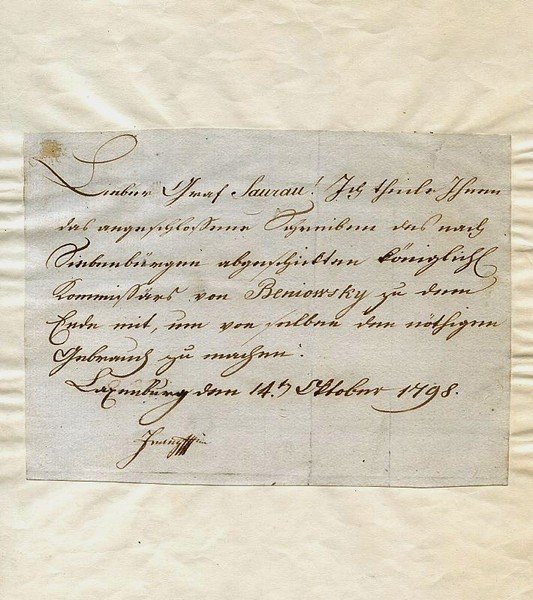 Lieber Graf Saurau! Ich theile Ihnen
das angeschlossene Schreiben des nach
Siebenbürgen abgeschickten königlich
Kommissärs von Beniowsky zu dem
Ende mit, um von selben den nöthigen
Gebrauch zu machen.
Laxenburg den 14. Oktober 1798.
Franz